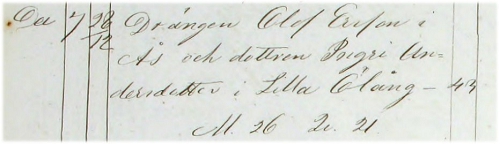 De 7 28/12 Drängen Olof Ersson i
Ås och dottren Ingri An-
dersdotter i Lilla Öläng — 43
M. 26 Qv. 21